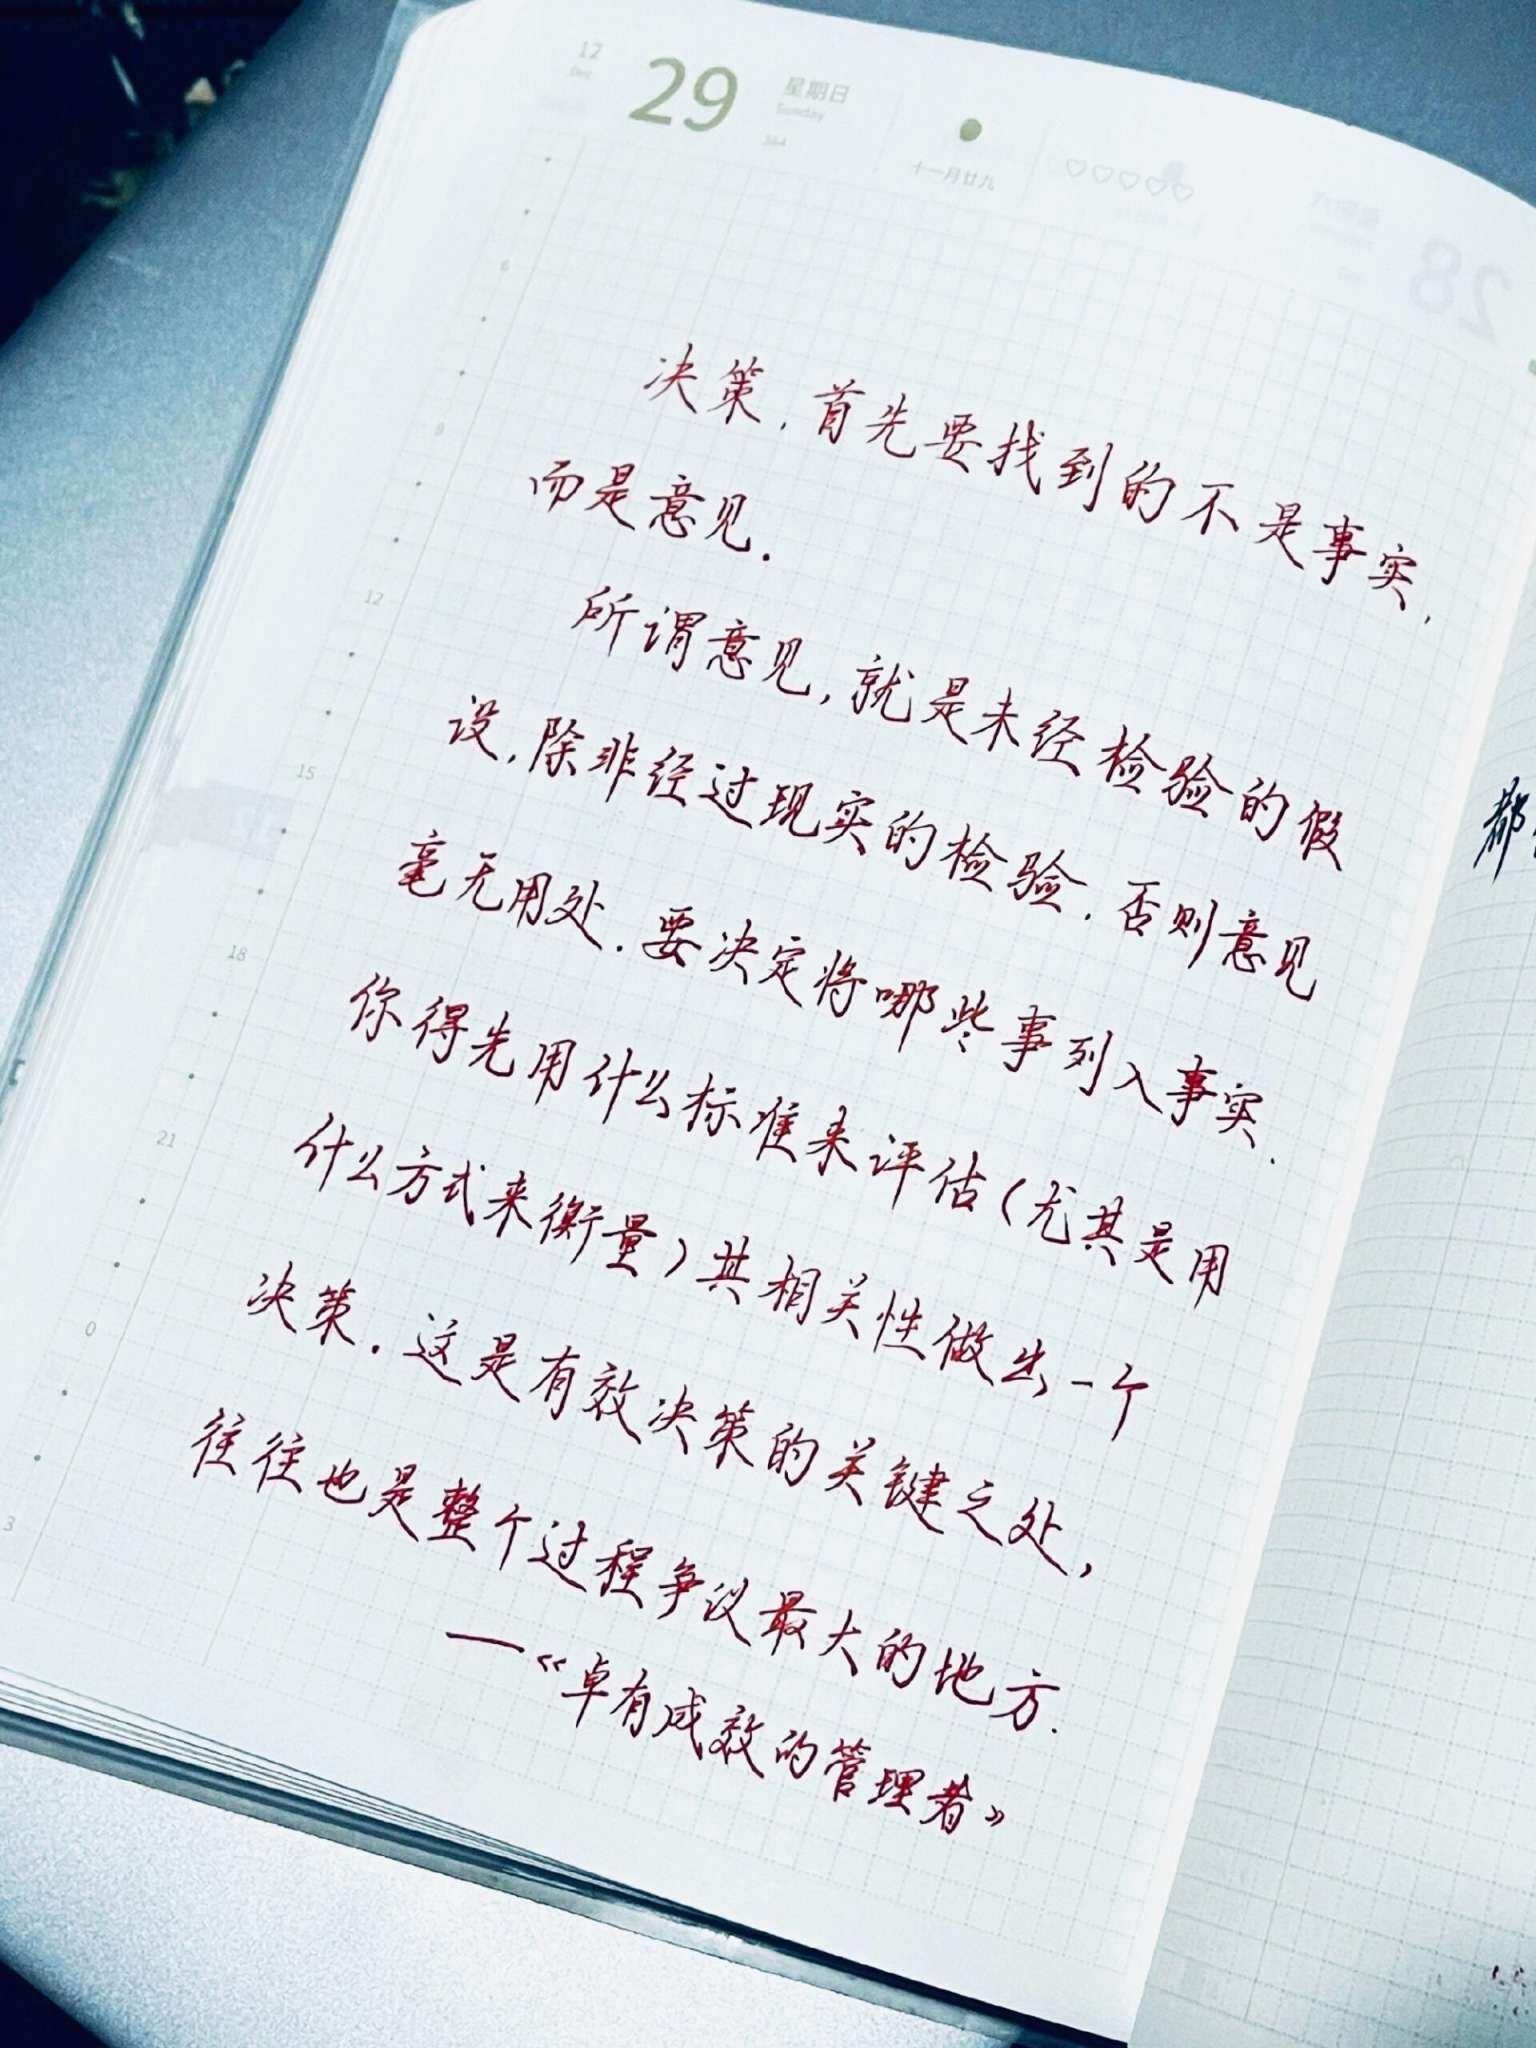 12
Dec
29
星期日
Sunday
364
十一月廿九
28
6
9
12
15
18
21
0
3
决策,首先要找到的不是事实,
而是意见.
所谓意见,就是未经检验的假
设,除非经过现实的检验.否则意见
毫无用处.要决定将哪些事列入事实.
你得先用什么标准来评估(尤其是用
什么方式来衡量)其相关性做出一个
决策.这是有效决策的关键之处,
往往也是整个过程争议最大的地方.
—《卓有成效的管理者》
都